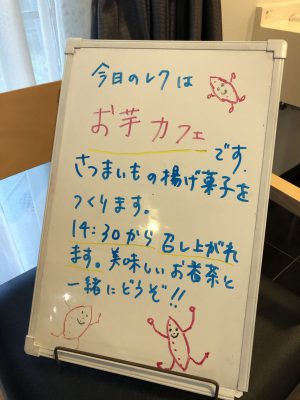 今日のレクは
お芋カフェ
です.
さつまいもの揚げ菓子を
つくります。
14:30から召し上がれ
ます。美味しいお番茶と
一緒にどうぞ!!